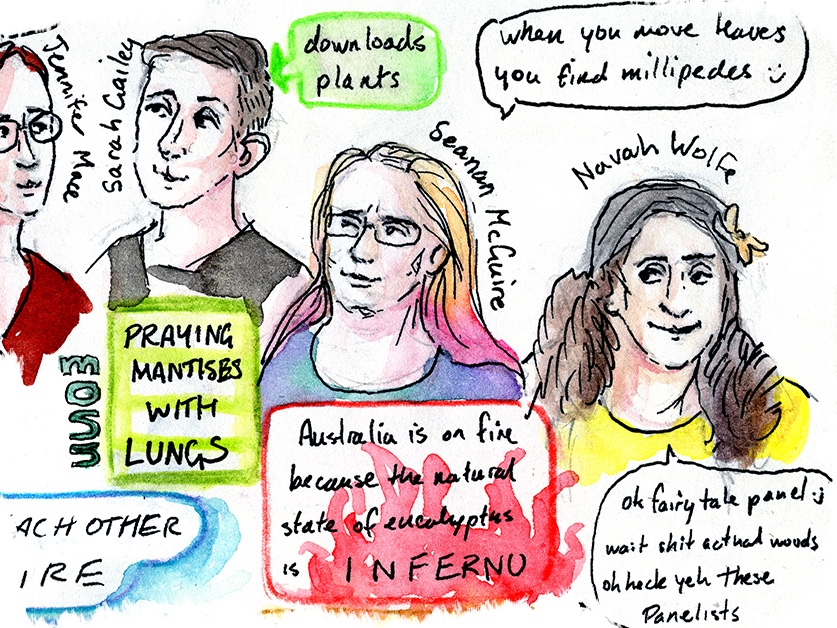 Jennifer Mace
Sarah Gailey
downloads
plants
when you move leaves
you find millipedes :)
Seanan McGuire
Navah Wolfe
PRAYING
MANTISES
WITH
LUNGS
Australia is on fire
because the natural
state of eucalyptus
is INFERNO
ACH OTHER
IRE
ok fairy tale panel :)
wait shit actual woods
oh heck yeh these
Panelists